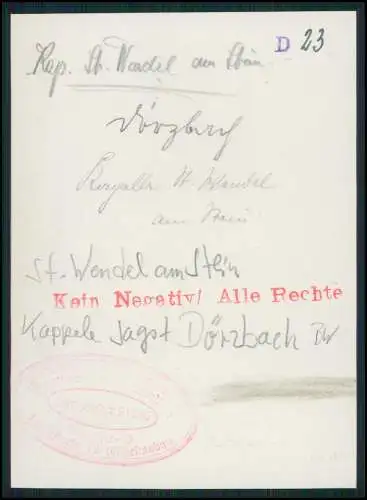 D 23
Kap. St. Wendel am Stein
Dörzbach
Kapelle St. Wendel
am Stein
St. Wendel am Stein
Kein Negativ/ Alle Rechte
Kappele Jagst Dörzbach BW